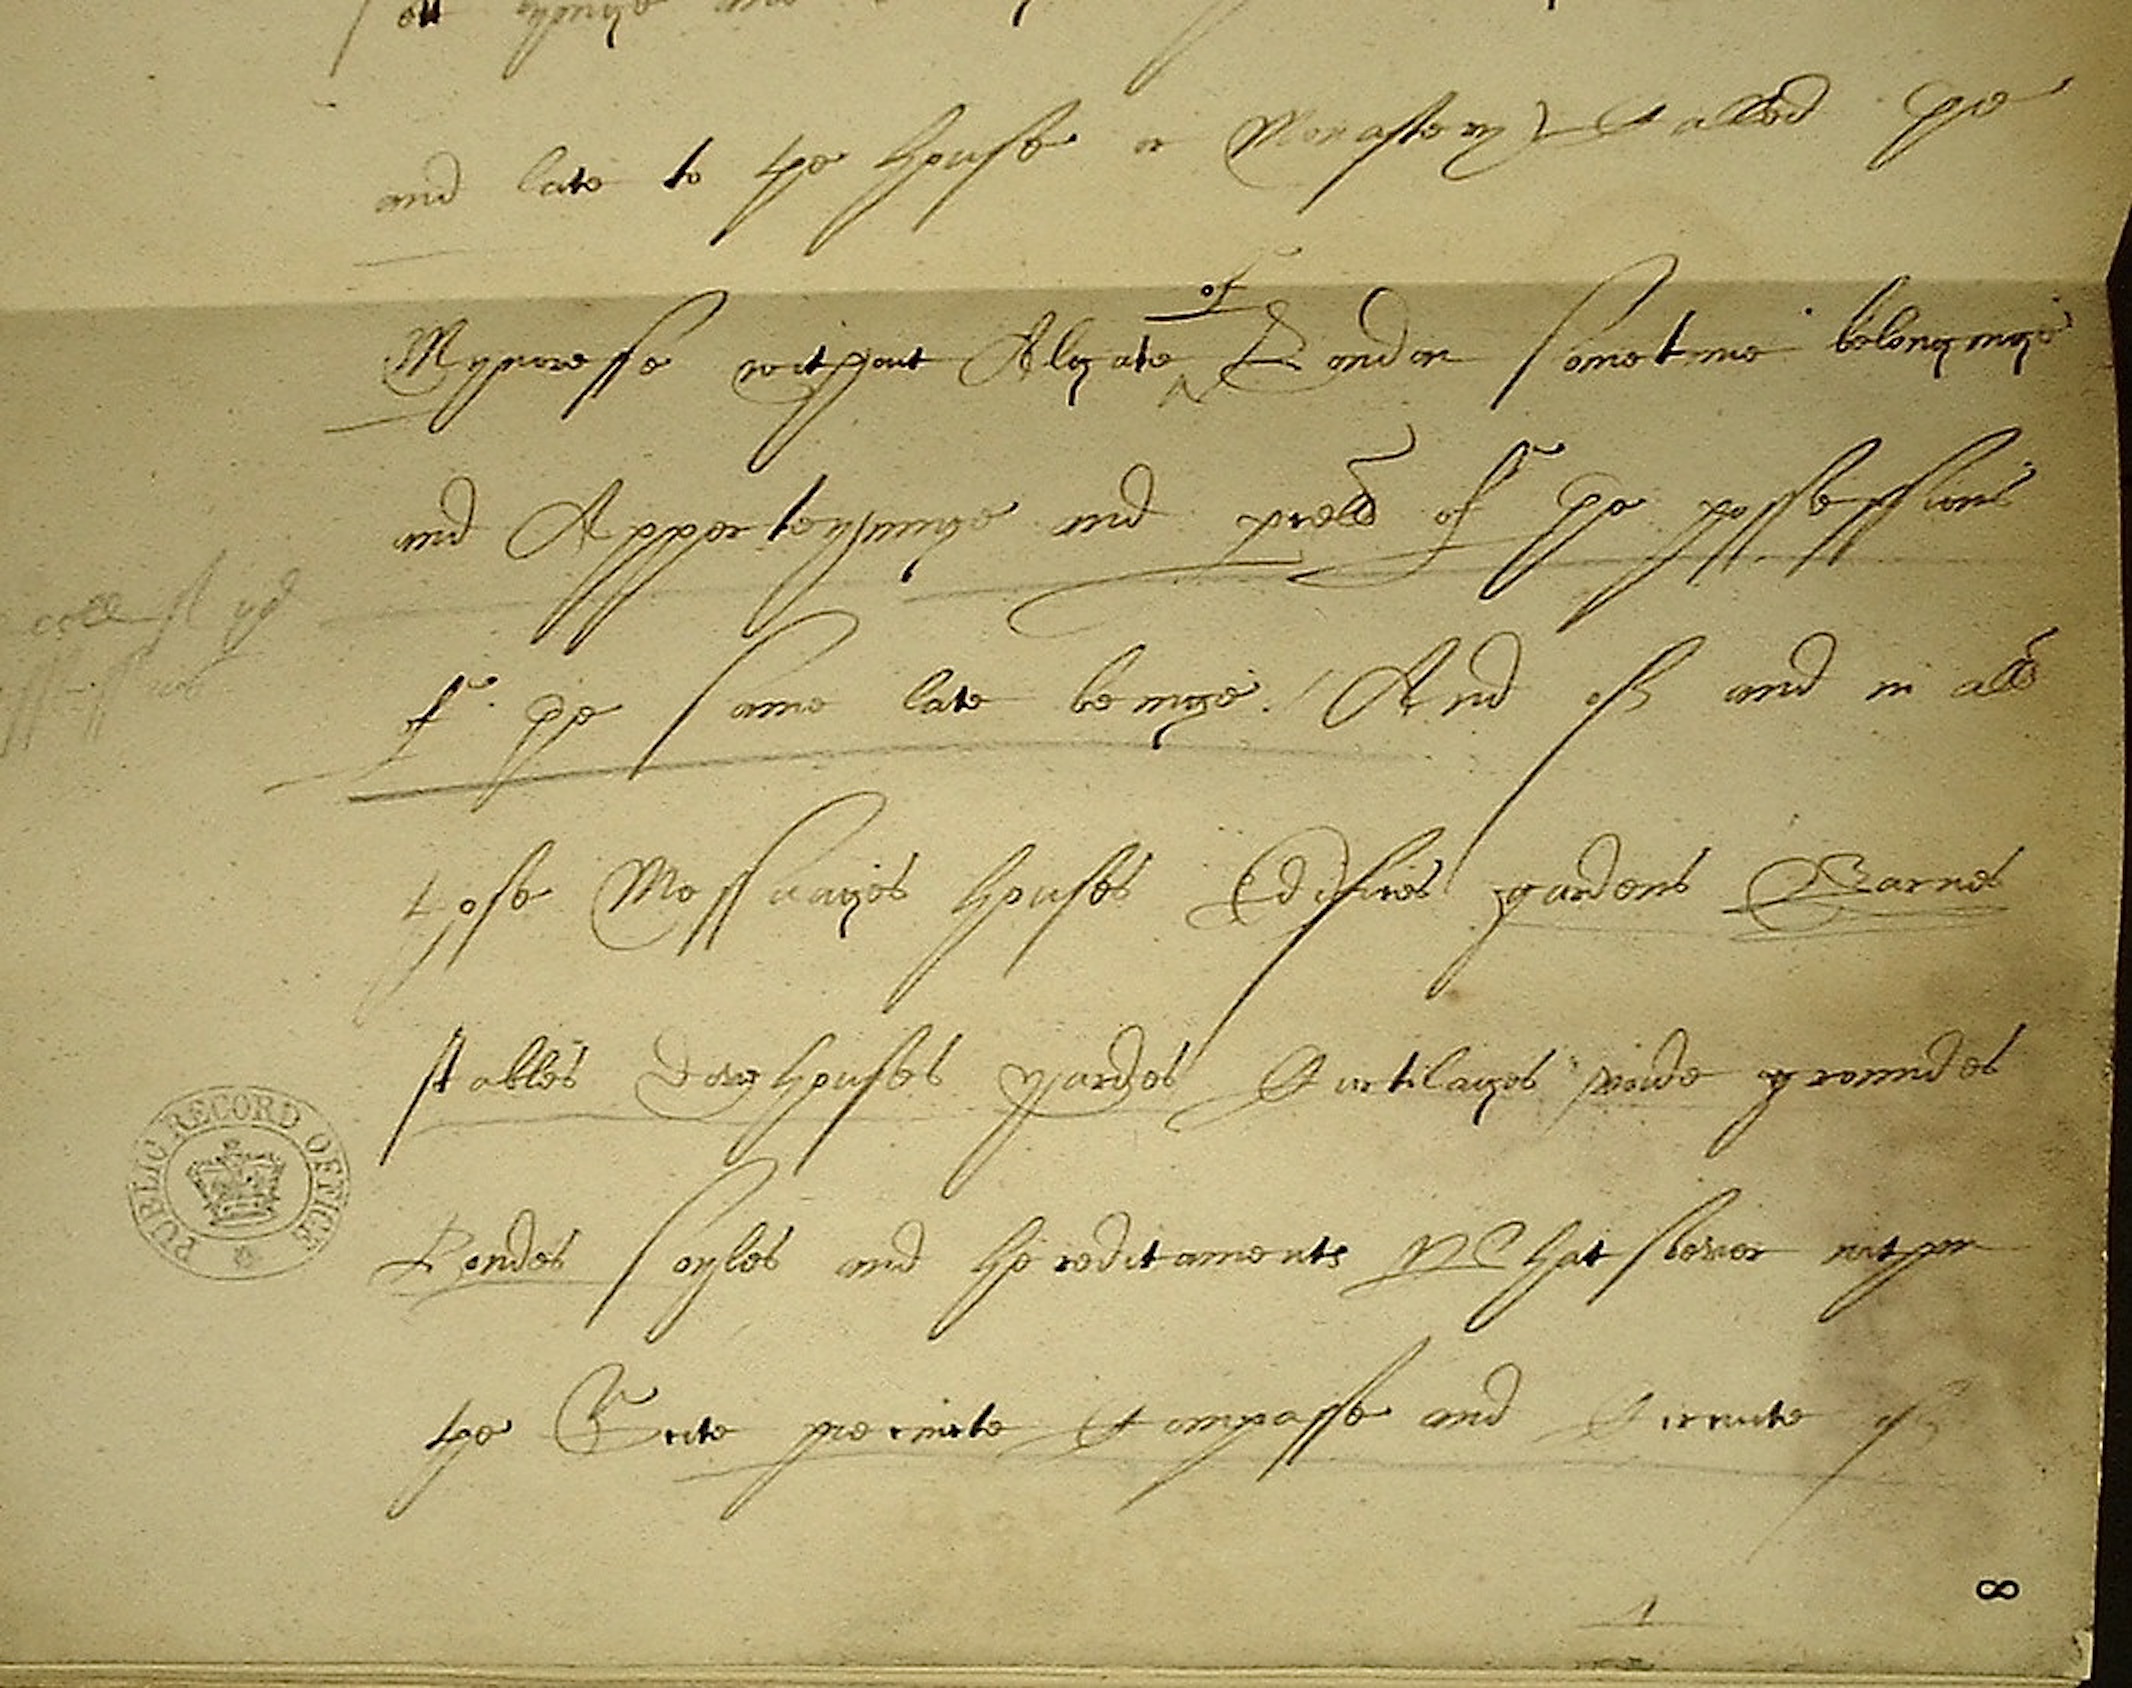 and late to the house or Monastery Called the
Mynoresse without Algate of London Sometime belonginge
and Apperteyninge and p'cell of the possessions
of the same late beinge. And of and in all
those Messuages houses Edifices gardens Barnes
stables Dovehouses yardes Curtilages voide groundes
Londes Soyles and hereditaments Whatsoever within
the Scite precincte Compasse and Circuite of
PUBLIC RECORD OFFICE
8